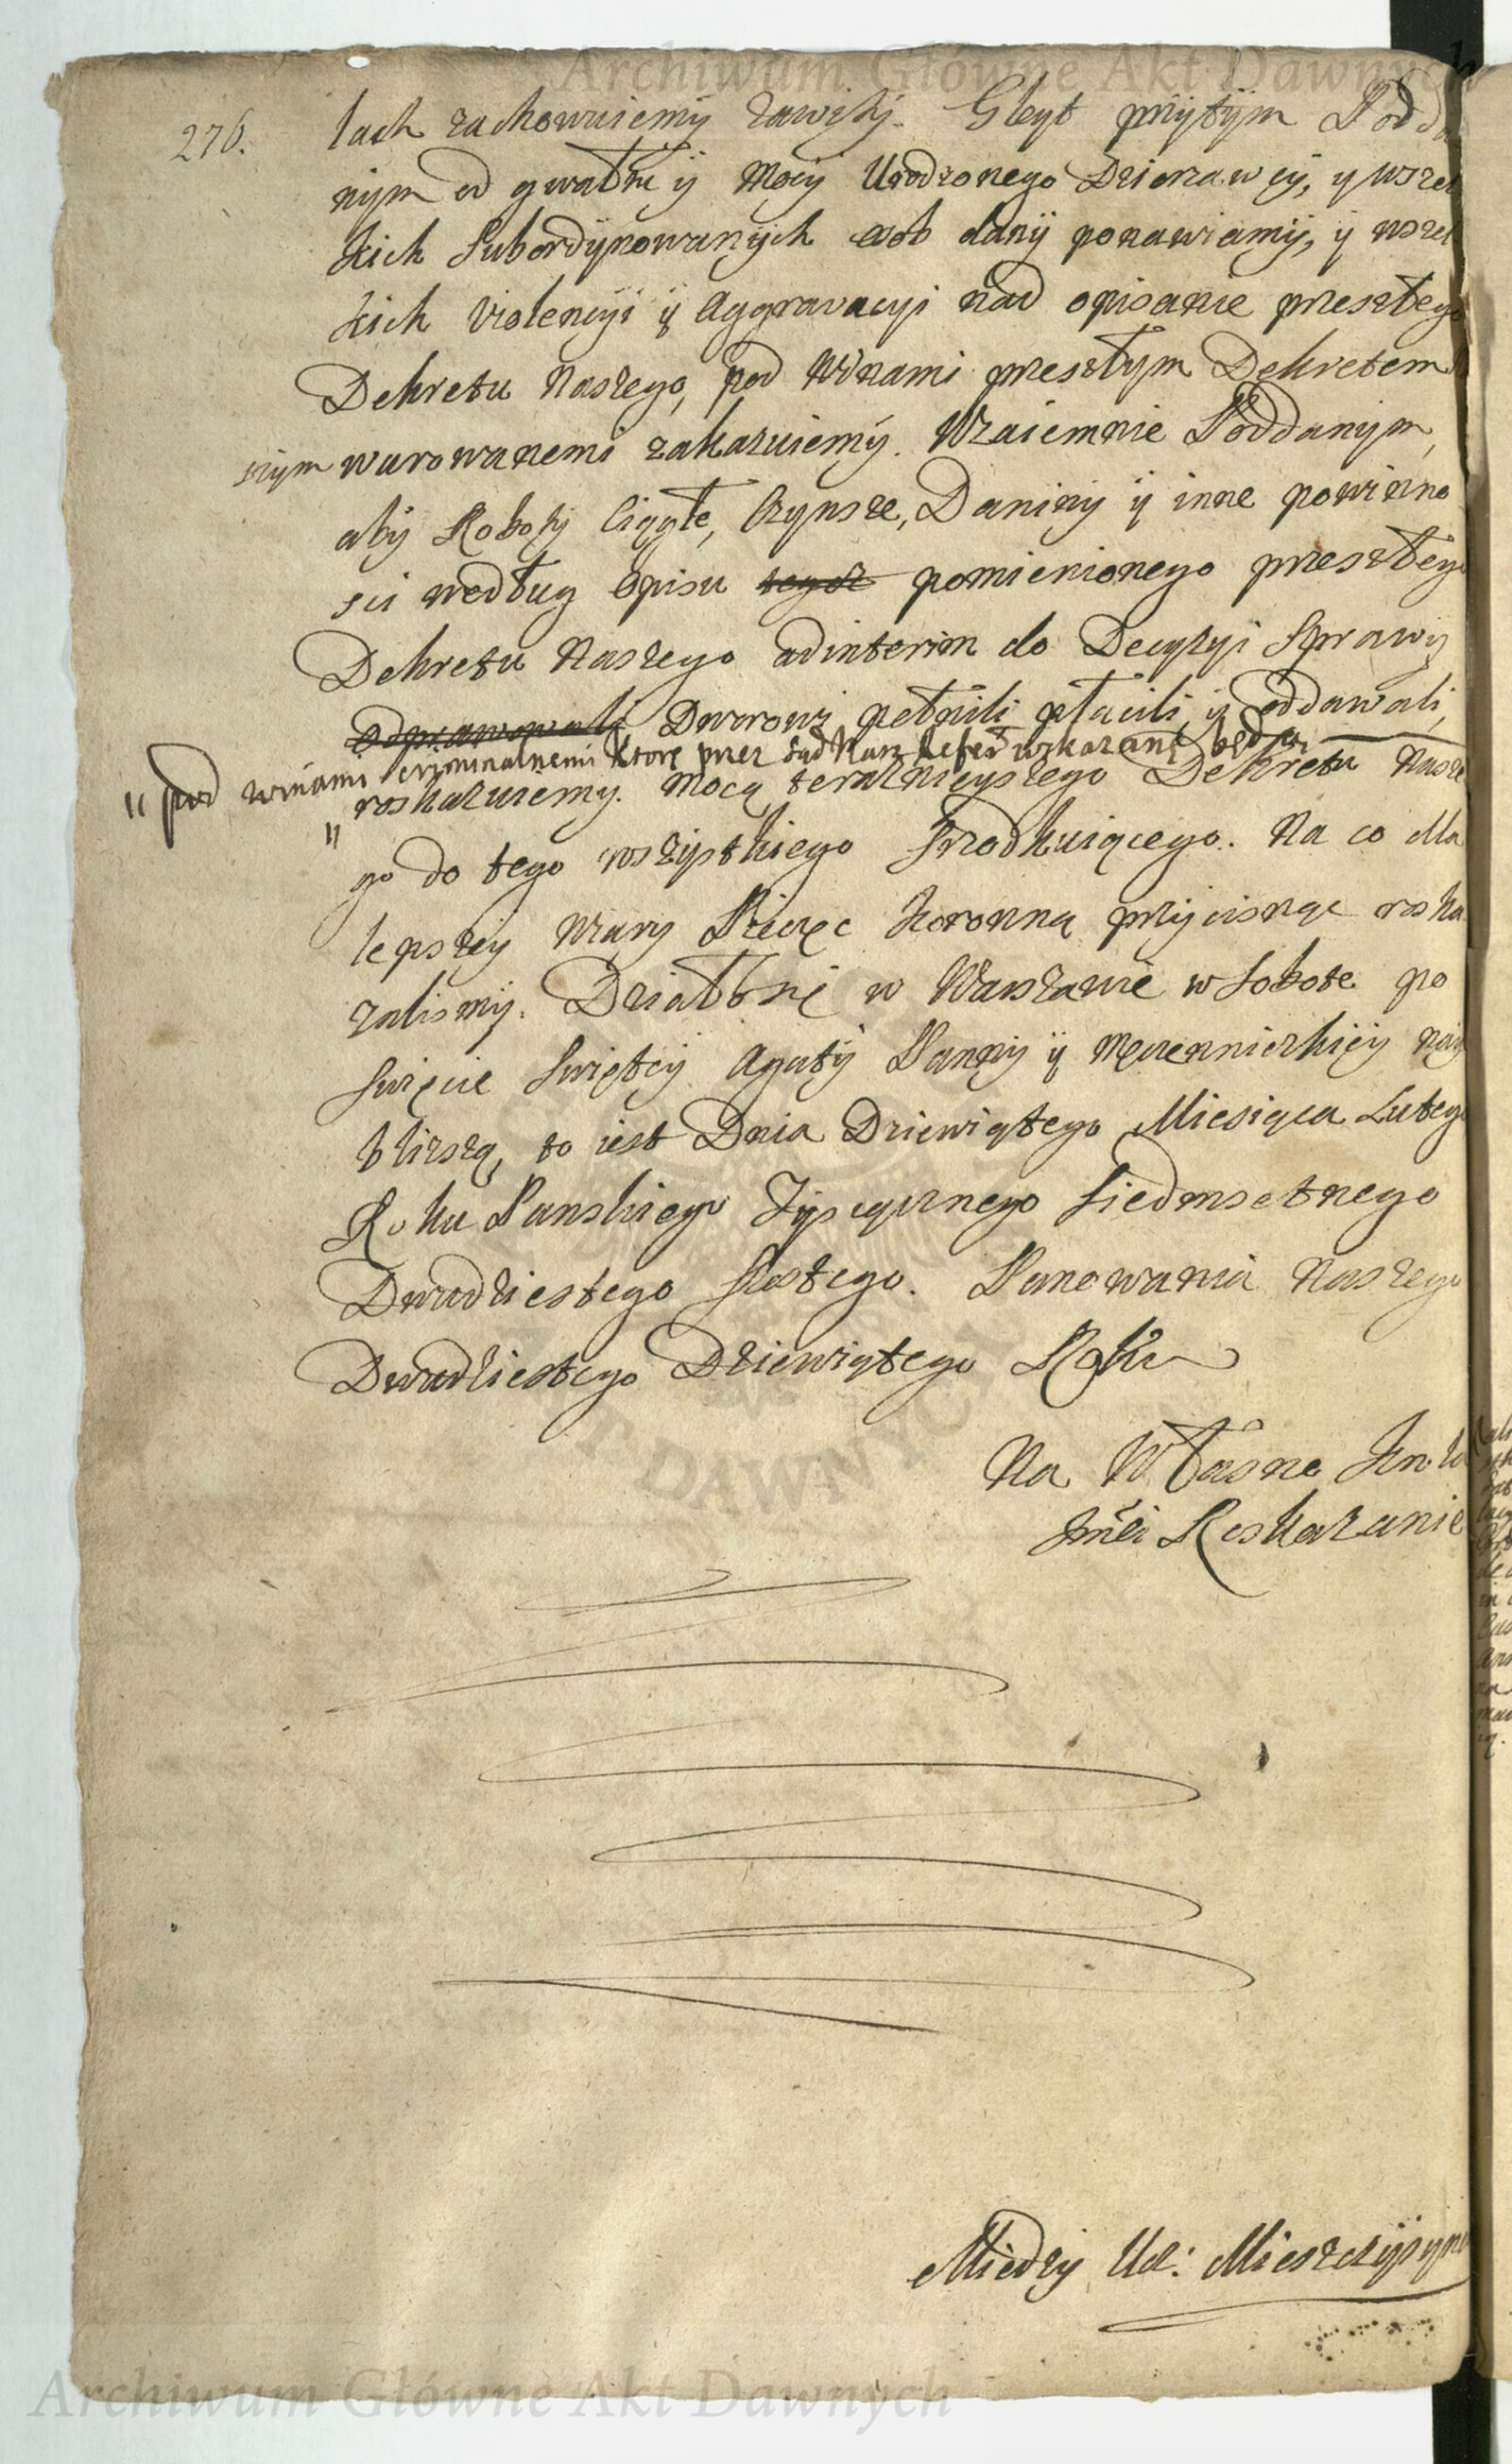 Archiwum Główne Akt Dawnych
276.
lach zachowuiemy zawity. Gleyt przytym Podda
nym od gwałtu y Mocy Urodzonego Dzierzawcy, y wszel
kich Subordynowanych osob dany ponawiamy, y wszel
kich Violencyi y Aggravacyi nad opisanie przeszłego
Dekretu Naszego, pod Winami przeszłym Dekretem
szym warowanemi zakazuiemy. Wzaiemnie Poddanym,
aby Roboty Ciągłe, Czynsze, Daniny y inne powinno
sci według Opisu tegoż pomienionego przeszłego
Dekretu Naszego adinterim do Decyzyi Sprawy
odprawowali Dworowi pełnili płacili, y oddawali,
" pod winami criminalnemi ktore przez Sąd Nasz Refer: wskazane będą,
" roskazuiemy. Mocą teraznieyszego Dekretu Nasze
go do tego wszystkiego srzodkuiącego. Na co dla
lepszey Wiary Pieczęc Koronną przycisnąc roska
zalismy. Działo się w Warszawie w Sobote po
Swięcie Swiętey Agaty Panny y Męczenniczkiey nay
bliższą, to iest Dnia Dziewiątego Miesiąca Lutego
Roku Panskiego Tysiącznego Siedmsetnego
Dwudziestego Szostego. Panowania Naszego
Dwudziestego Dziewiątego Roku
Na Własne
Jmści Roskazanie
Między Ur: Mieszczyzny
Archiwum Główne Akt Dawnych